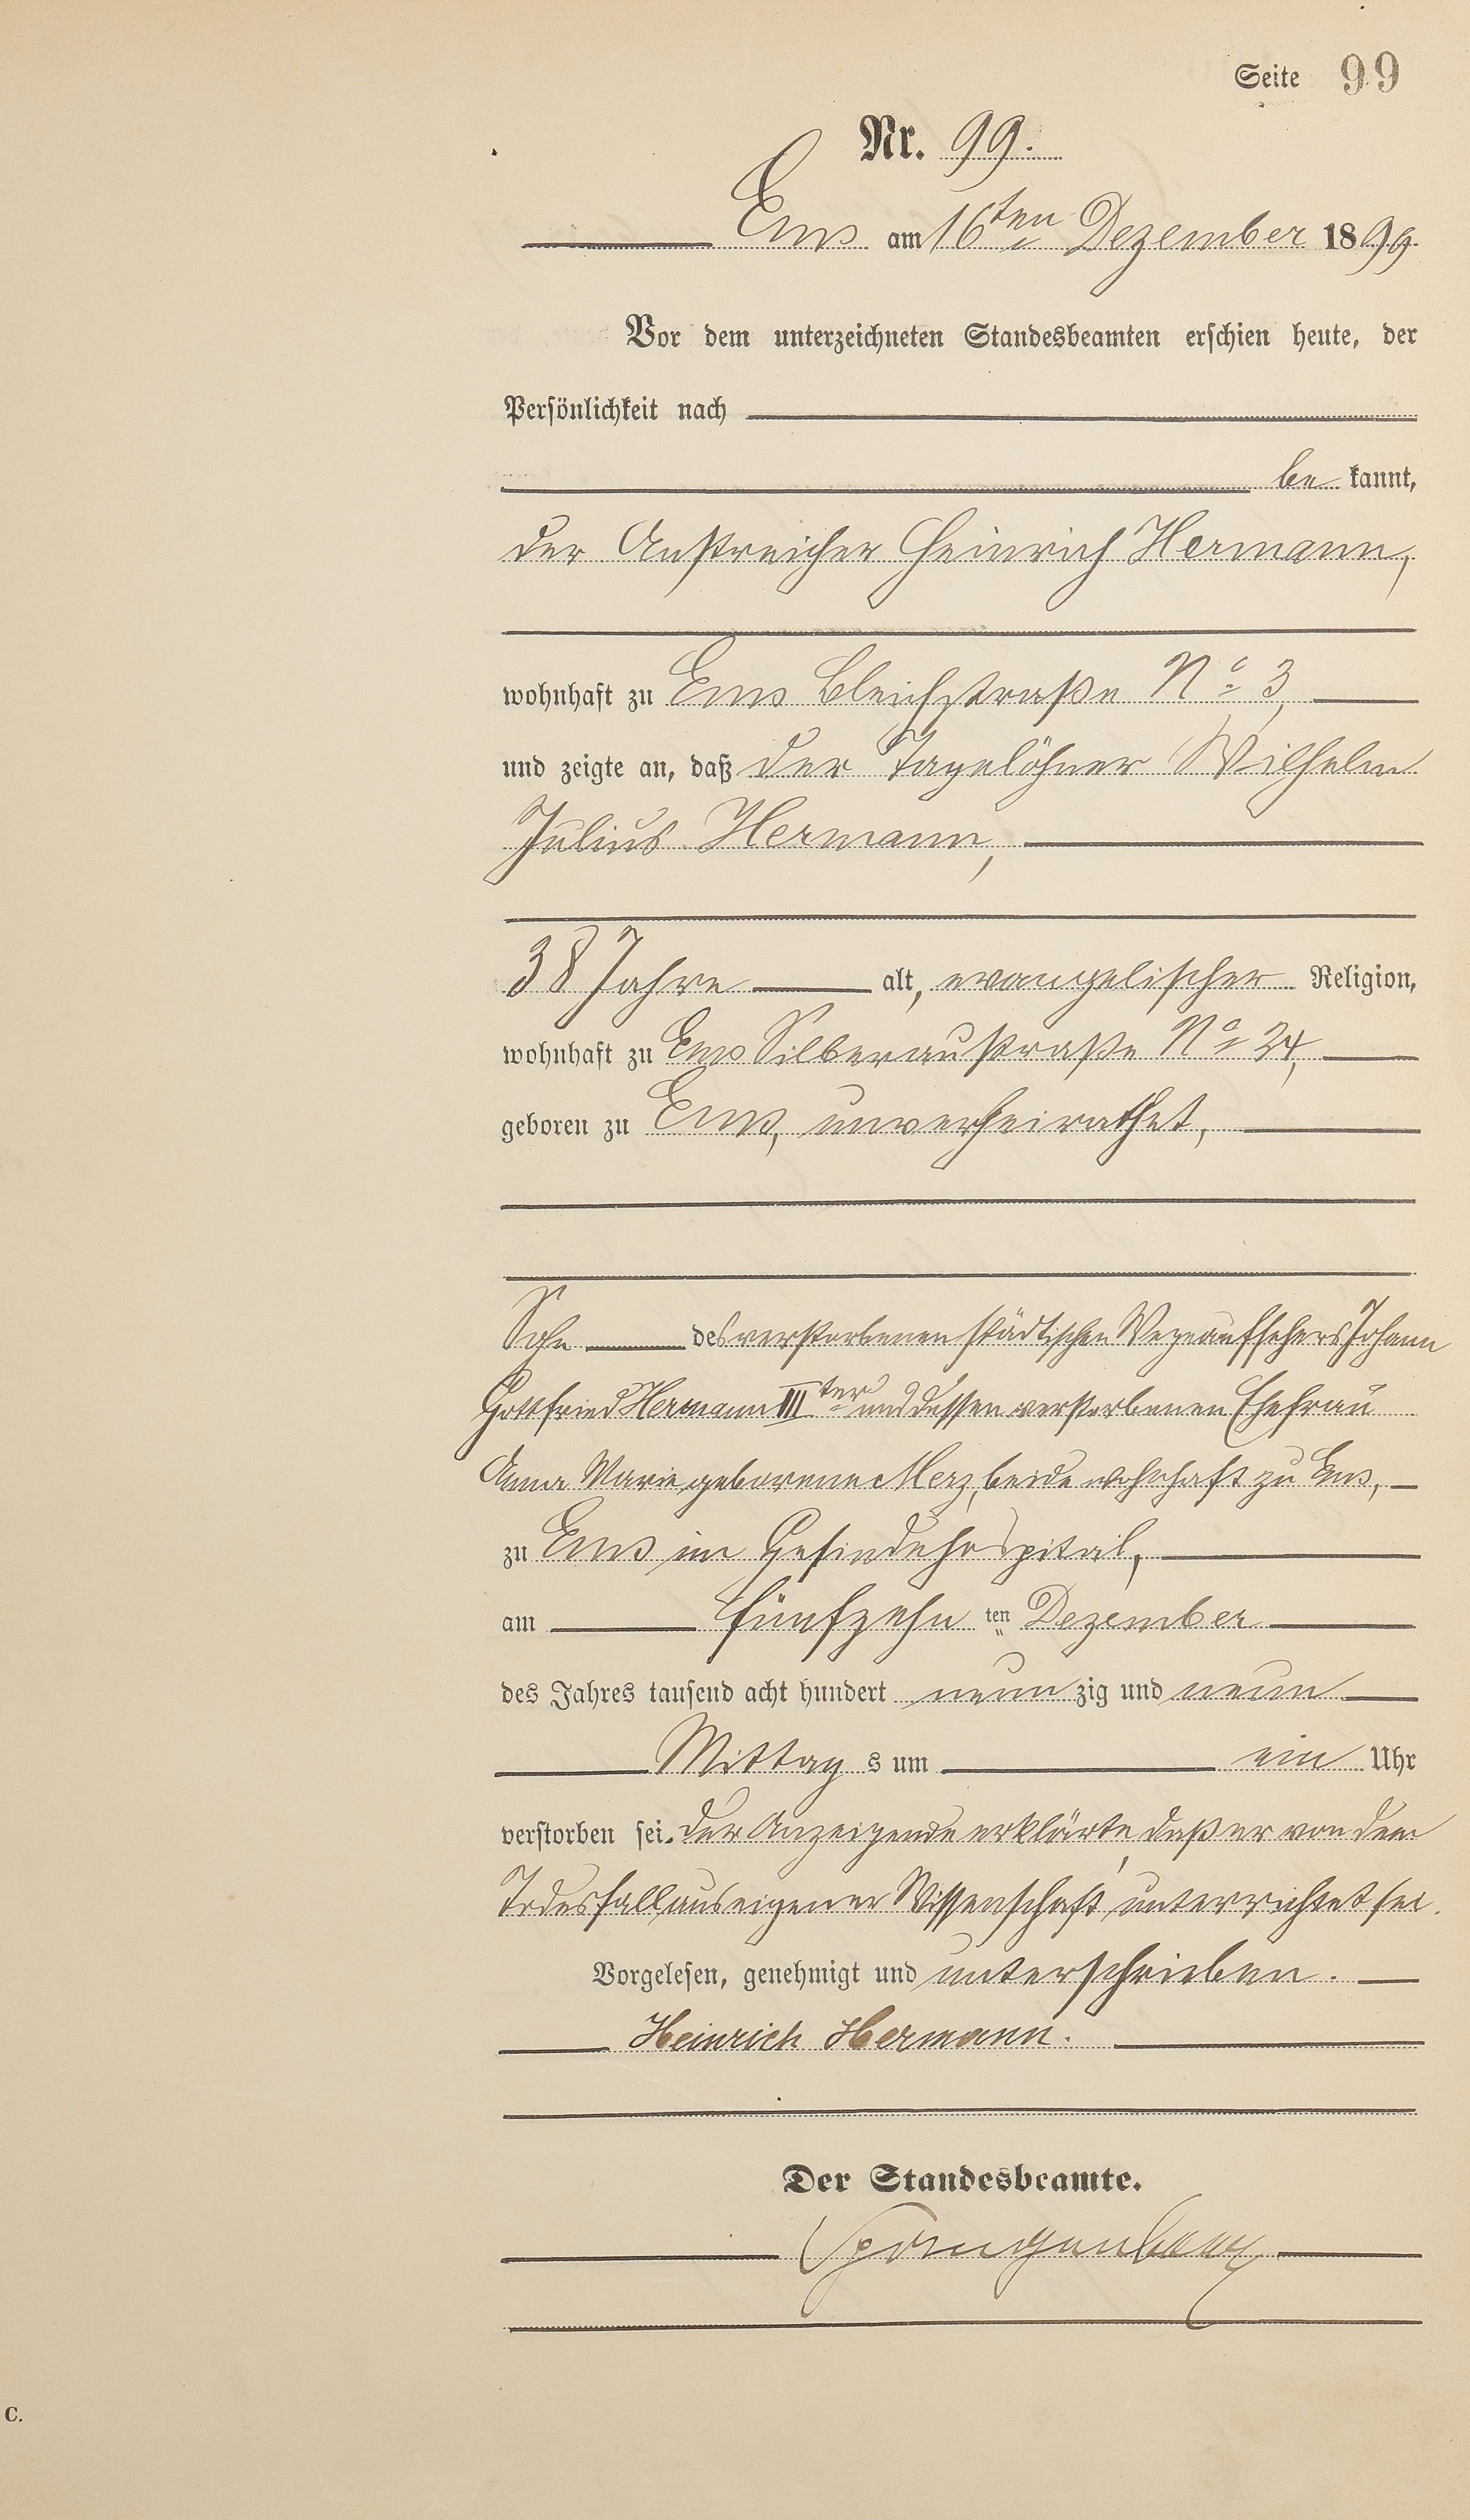 Seite 99
Nr. 99.
Ems am 16ten Dezember 1899
Vor dem unterzeichneten Standesbeamten erschien heute, der
Persönlichkeit nach
be kannt,
der Anstreicher Heinrich Hermann,
wohnhaft zu Ems Bleichstraße No 3,
und zeigte an, daß der Tagelöhner Wilhelm
Julius Hermann,
38 Jahre alt, evangelischer Religion,
wohnhaft zu Ems Silberaustraße No 24,
geboren zu Ems, unverheirathet,
Sohn des verstorbenen städtischen Wegeaufsehers Johann
Gottfried Hermann IIIter und dessen verstorbenen Ehefrau
Anna Marie geborene Merz, beide wohnhaft zu Ems,
zu Ems im Gesindehospital,
am fünfzehn ten Dezember
des Jahres tausend acht hundert neun zig und neun
Mittag s um ein Uhr
verstorben sei. Der Anzeigende erklärte, daß er von dem
Todesfall aus eigener Wissenschaft unterrichtet sei.
Vorgelesen, genehmigt und unterschrieben.
Heinrich Hermann.
Der Standesbeamte.
C.